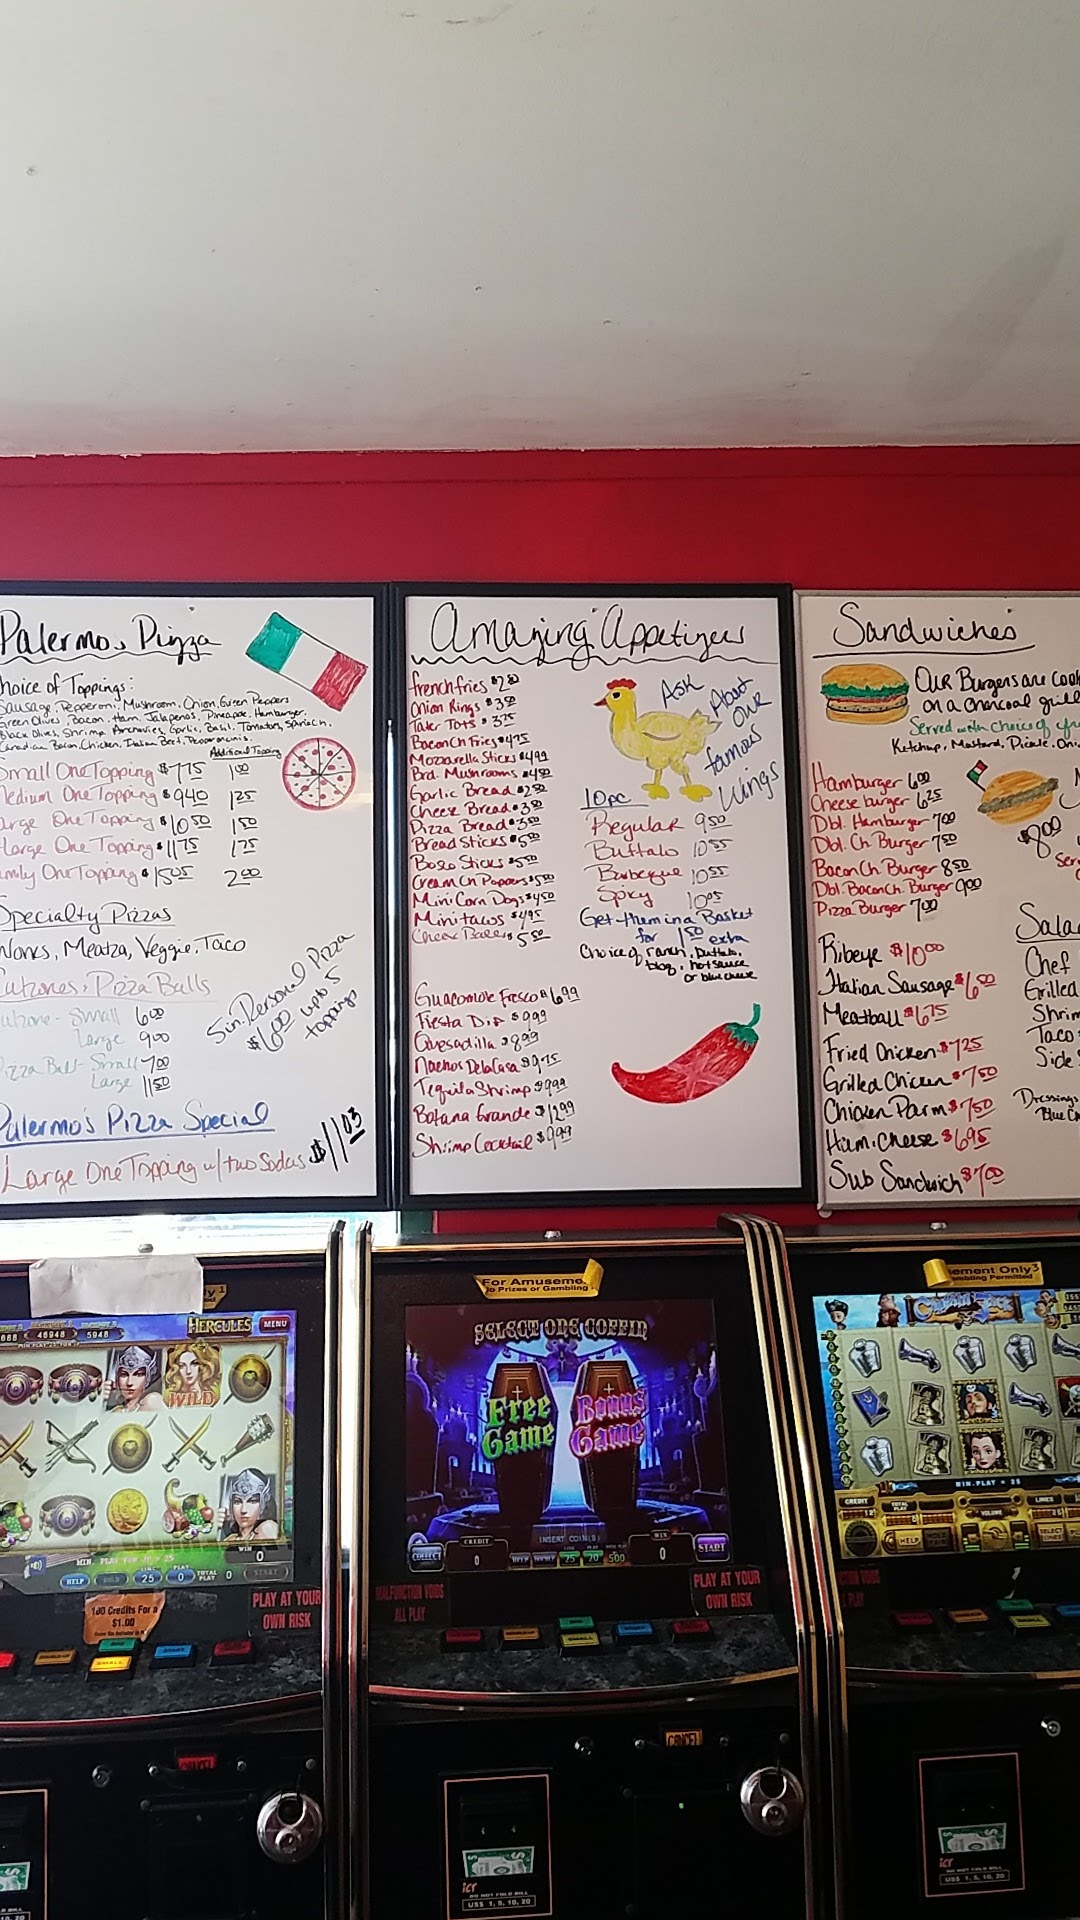 Palermo's Pizza
Choice of Toppings:
Sausage, Pepperoni, Mushroom, Onion, Green Peppers
Green Olives, Bacon, Ham, Jalapenos, Pineapple, Hamburger,
Black Olives, Shrimp, Anchovies, Garlic, Basil, Tomatoes, Spinach,
Canadian Bacon, Chicken, Italian Beef, Pepperoncinis.
Additional Topping
Small One Topping $7.75 1.00
Medium One Topping $9.40 1.25
Large One Topping $10.50 1.50
One Topping $11.75 1.75
Family One Topping $15.05 2.00
Specialty Pizzas
Works, Meatza, Veggie, Taco
Pizza Balls
Small 6.00
Large 9.00
Pizza Ball - Small 7.00
Large 11.50
5in Personal Pizza
$6.00 up to 5
toppings
Palermo's Pizza Special
Large One Topping w/ two Sodas $11.03
Amazing Appetizers
french fries $2.80
Onion Rings $3.50
Tater Tots $3.75
Bacon Ch Fries $4.75
Mozzarella Sticks $4.99
Brd. Mushrooms $4.50
Garlic Bread $2.50
Cheese Bread $3.50
Pizza Bread $3.50
Bread Sticks $5.50
Bosco Sticks $5.50
Cream Ch Poppers $5.50
Mini Corn Dogs $4.50
Mini tacos $4.95
Cheese Balls $5.50
Ask About our famous Wings
10pc
Regular 9.50
Buffalo 10.55
Barbeque 10.55
Spicy 10.05
Get them in a Basket
for 1.50 extra
Choice of ranch, buffalo,
bbq, hot sauce
or blue cheese
Guacomole Fresco $6.99
Fiesta Dip $9.99
Quesadilla $8.99
Nachos Dela Casa $9.75
Tequila Shrimp $9.99
Botana Grande $12.99
Shrimp Cocktail $9.99
Sandwiches
Our Burgers are
on a charcoal grill
Served with choice of
Ketchup, Mustard, Pickle,
Hamburger 6.00
Cheese burger 6.25
Dbl. Hamburger 7.00
Dbl. Ch. Burger 7.50
Bacon Ch. Burger 8.50
Dbl. Bacon Ch. Burger 9.00
Pizza Burger 7.00
$8.00
Ribeye $10.00
Italian Sausage $6.50
Meatball $6.75
Fried Chicken $7.25
Grilled Chicken $7.50
Chicken Parm $7.50
Ham & Cheese $6.95
Sub Sandwich $7.00
Chef
Grilled
Taco
Side
Dressings
HERCULES MENU
46948 5948
WILD
MIN. PLAY FOR JP = 25
WIN 0
HELP HOLD 25 PLAY 0 TOTAL PLAY 0 START
100 Credits For a
$1.00
PLAY AT YOUR
OWN RISK
SMALL
For Amusement
No Prizes or Gambling
SELECT ONE COFFIN
Free Game
Bonus Game
INSERT COIN(S)
COLLECT CREDIT 0 HELP 25 20 500 WIN 0 START
MALFUNCTION VOIDS
ALL PLAY
PLAY AT YOUR
OWN RISK
SMALL
CANCEL
ict
DO NOT FOLD BILL
US$ 1, 5, 10, 20
Only 3
Gambling Permitted
MIN. PLAY = 25
CREDIT TOTAL PLAY LINES
HELP VOLUME SELECT LINES
ict
DO NOT FOLD BILL
US$ 1, 5, 10, 20